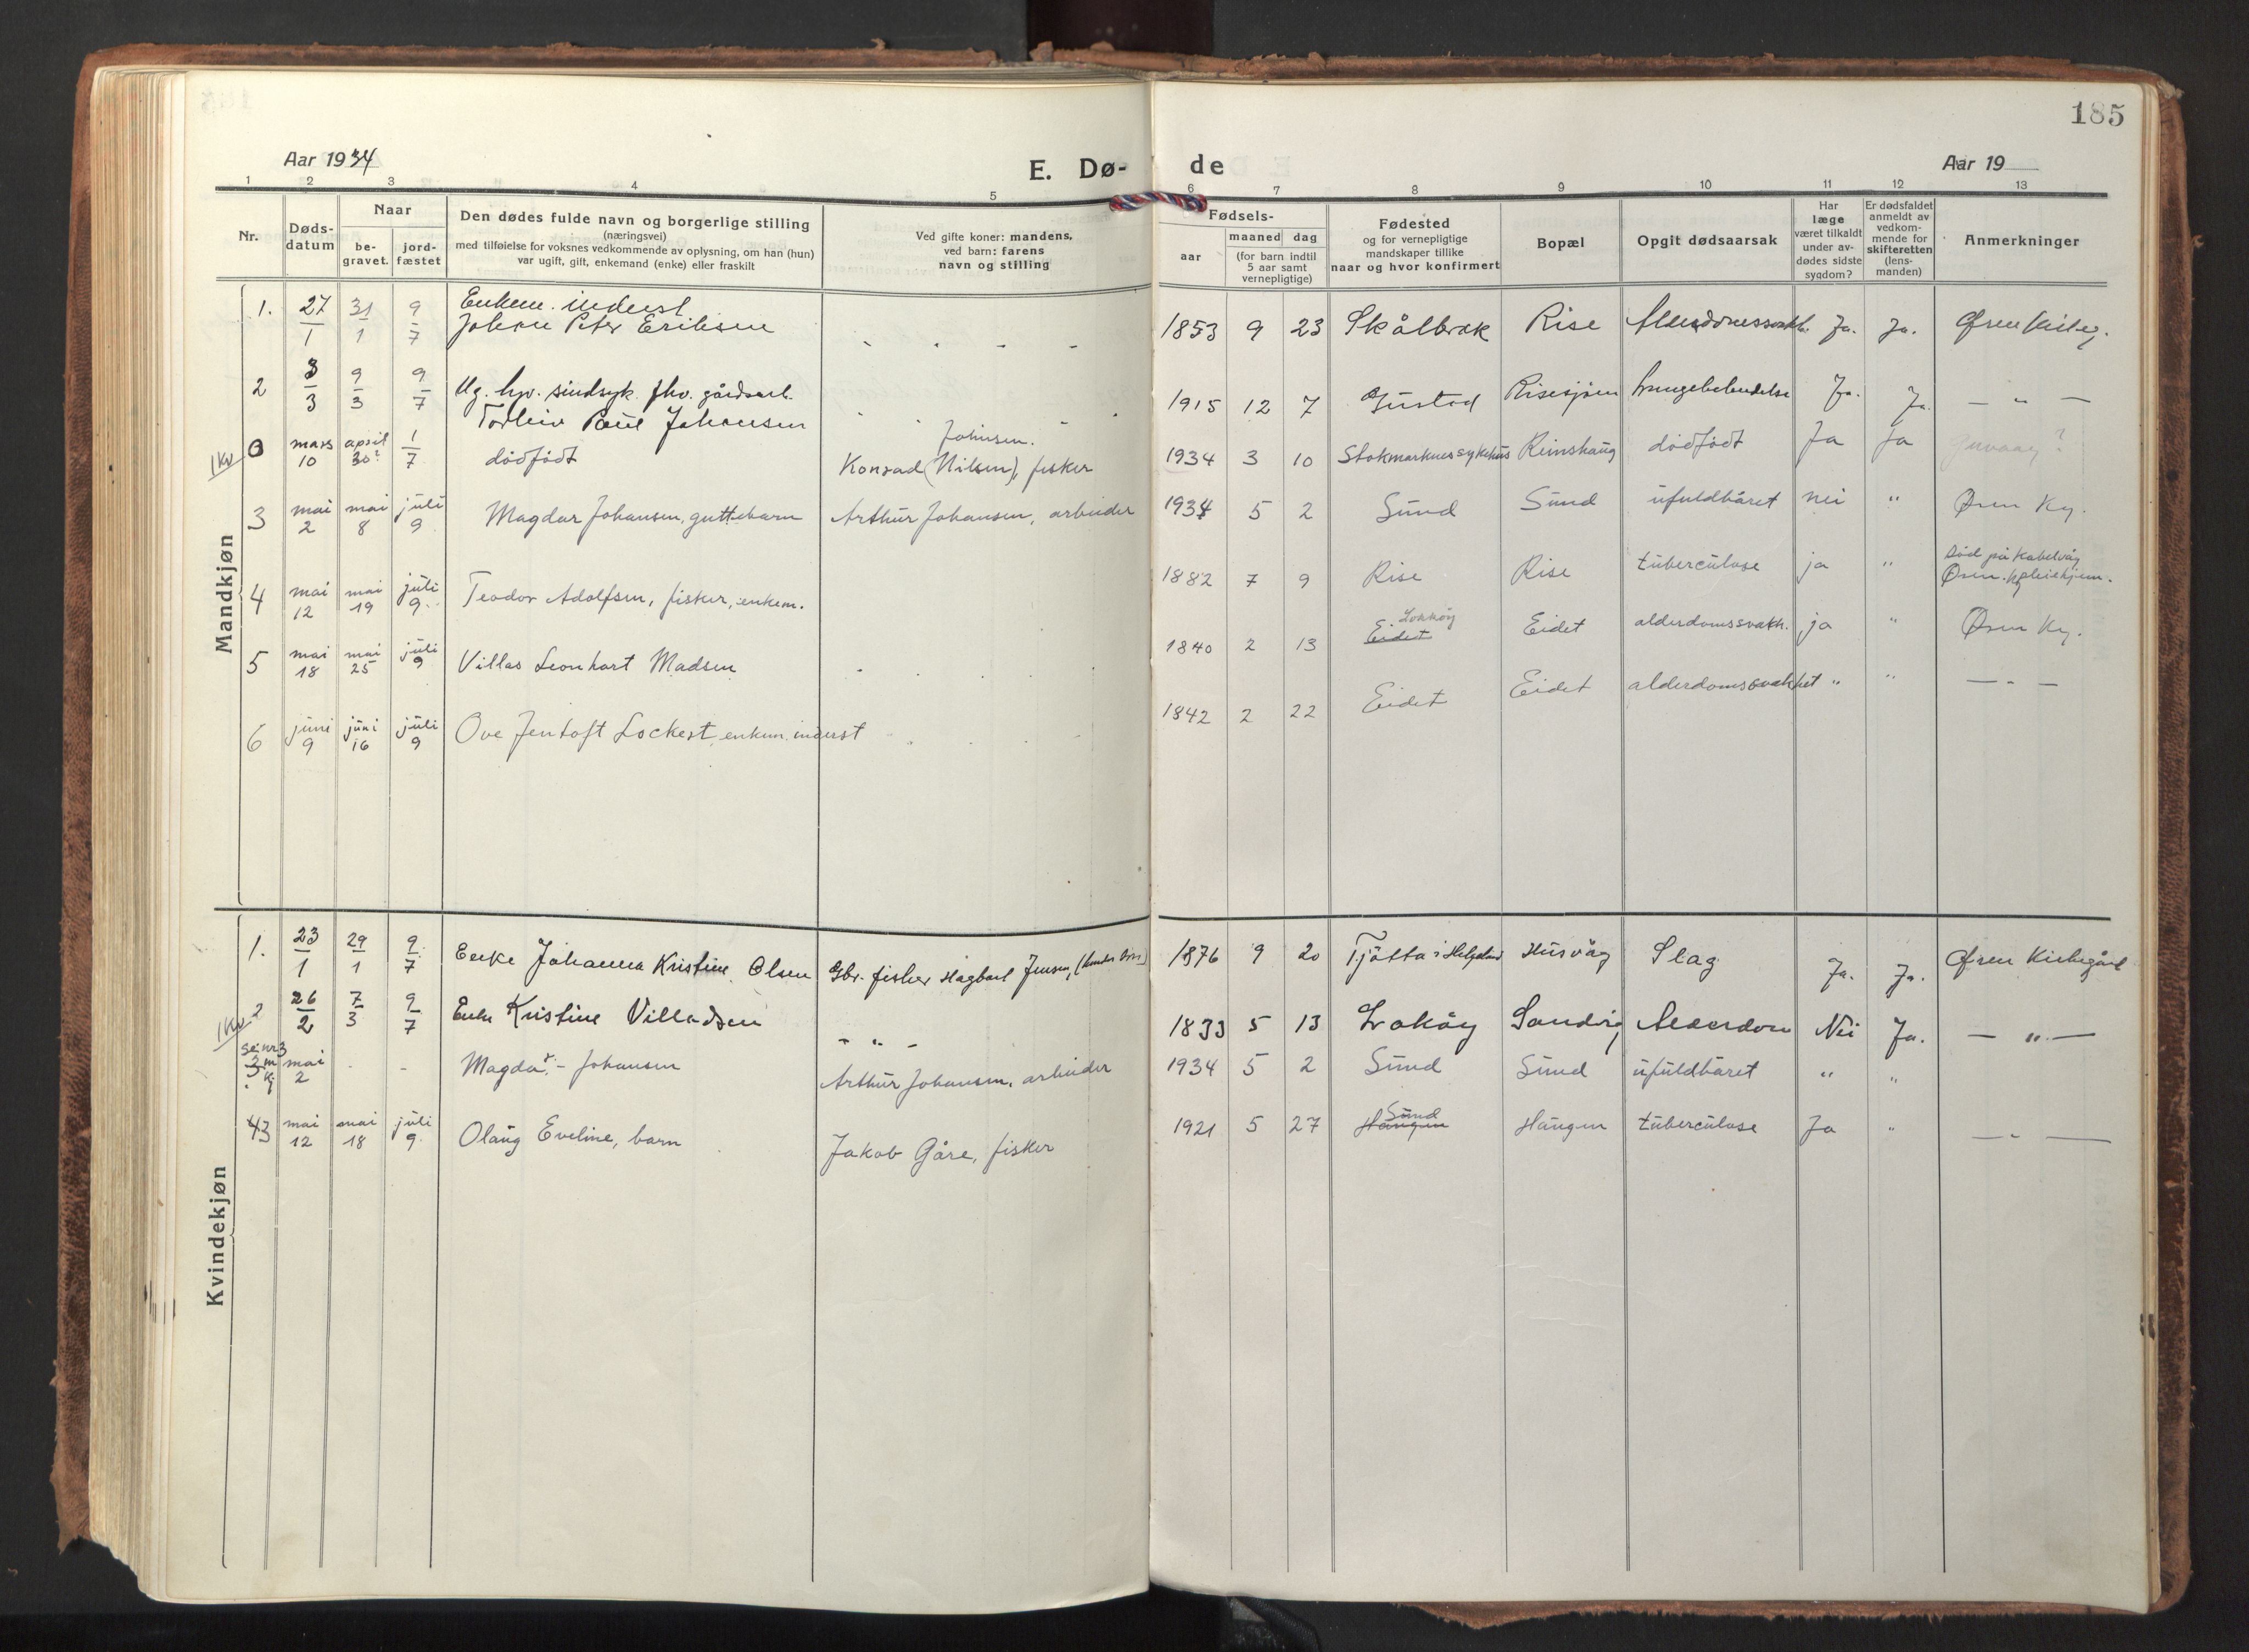 185
Aar 1934
E. Dø-
de
Aar 19
1 2 3 4 5 6 7 8 9 10 11 12 13
Nr.
Døds-
datum
Naar
be-
gravet.
jord-
fæstet
Den dødes fulde navn og borgerlige stilling
(næringsvei)
med tilføielse for voksnes vedkommende av oplysning, om han (hun)
var ugift, gift, enkemand (enke) eller fraskilt
Ved gifte koner: mandens,
ved barn: farens
navn og stilling
Fødsels-
aar
maaned dag
(for barn indtil
5 aar samt
vernepligtige)
Fødested
og for vernepligtige
mandskaper tillike
naar og hvor konfirmert
Bopæl
Opgit dødsaarsak
Har
læge
været tilkaldt
under av-
dødes sidste
sygdom?
Er dødsfaldet
anmeldt av
vedkom-
mende for
skifteretten
(lens-
manden)
Anmerkninger
Mandkjøn
1. 27/1 31/1 9/7 Enkem. inderst
Johan Peter Eriksen 1853 9 23 Skålbrek Rise Ja. Ja.
2 3/3 9/3 9/7 Ug. hjv. sindsyk fhv. gårdsarb.
Torleiv Paul Johansen 1915 12 7 Gustad Risesjøen Lungebetendelse Ja. Ja. — " —
1 kv 0 mars 10 april 30? 1/7 dödfödt Johnsen.
Konrad (Nilsen), fisker 1934 3 10 Stokmarknes sykehus Reinshaug dödfödt Ja Ja
3 mai 2 mai 8 juli 9 Magdar Johansen, guttebarn Arthur Johansen, arbeider 1934 5 2 Sund Sund ufuldbåret nei " Øren Kg.
4 mai 12 mai 19 juli 9. Teodor Adolfsen, fisker, enkem. 1882 7 9 Rise Rise tuberculose ja " Död på Kabelvåg
Øren Kg. pleiehjem.
5 mai 18 mai 25 juli 9 Villas Leonhart Madsen 1840 2 13 Eidet Eidet alderdomssvakh. ja " Øren Kg.
6 juni 9 juni 16 juli 9 Ove Jentoft Lockert enkem. inderst 1842 2 22 Eidet Eidet alderdomssvakhet " " — " —
Kvindekjøn
1. 23/1 29/1 9/7 Enke Johanna Kristine Olsen Gbr. fisker Hagbart Jensen, 1876 9 20 Tjötta i Helgeland Husvåg Slag Ja. Ja. Øren Kirkegård
1 kv 2 26/2 7/3 9/7 Enke Kristine Villadsen - " - 1833 5 13 Sandvig Alderdom Nei Ja. — " —
Se nr 3 m kj
3 mai 2 - - Magda - Johansen Arthur Johansen, arbeider 1934 5 2 Sund Sund ufuldbåret " "
43 mai 12 mai 18 juli 9. Olaug Eveline, barn Jakob Gåre, fisker 1921 5 27 Sund
Haugen Haugen tuberculose Ja " — " —